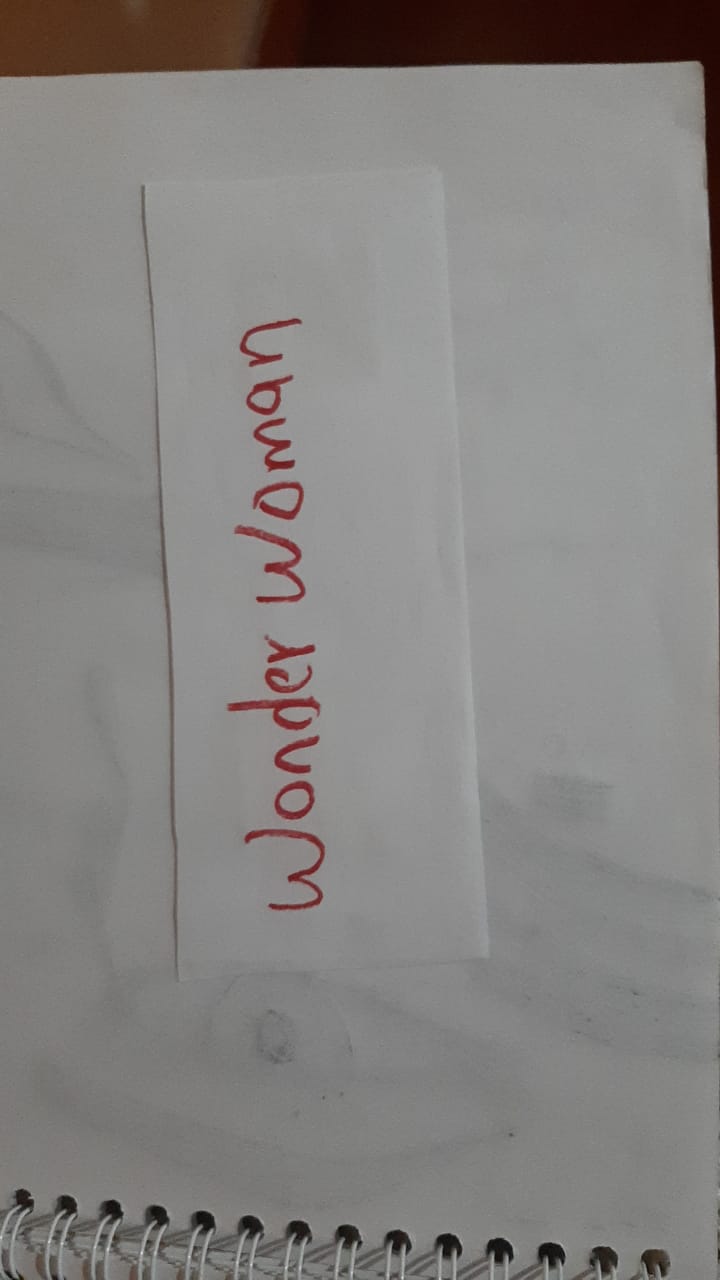 Wonder Woman